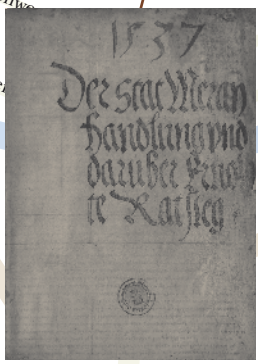 1537
Der stat Meran
handlung vnd
daruber
te Ratsleg